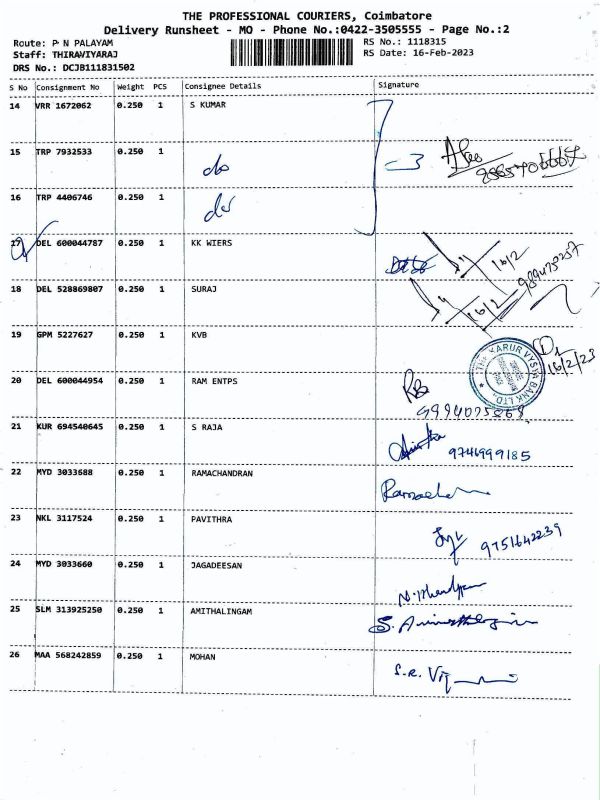 THE PROFESSIONAL COURIERS, Coimbatore
Delivery Runsheet - MO - Phone No.:0422-3505555 - Page No.:2
Route: P N PALAYAM
RS No.: 1118315
Staff: THIRAVIYARAJ
RS Date: 16-Feb-2023
DRS No.: DCJB111831502
S No Consignment No Weight PCS Consignee Details Signature
14 VRR 1672062 0.250 1 S KUMAR
15 TRP 7932533 0.250 1 do
16 TRP 4406746 0.250 1 do
17 DEL 600044787 0.250 1 KK WIERS
16/2
18 DEL 528869807 0.250 1 SURAJ
16/2
19 GPM 5227627 0.250 1 KVB
THE KARUR VYSYA BANK LTD.
16/2/23
20 DEL 600044954 0.250 1 RAM ENTPS
21 KUR 694540645 0.250 1 S RAJA
9746999185
22 MYD 3033688 0.250 1 RAMACHANDRAN
23 NKL 3117524 0.250 1 PAVITHRA
9751642239
24 MYD 3033660 0.250 1 JAGADEESAN
25 SLM 313925250 0.250 1 AMITHALINGAM
26 MAA 568242859 0.250 1 MOHAN